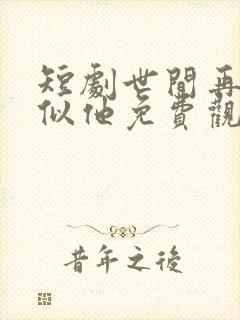 短劇世間再
似他免費觀
昔年之後